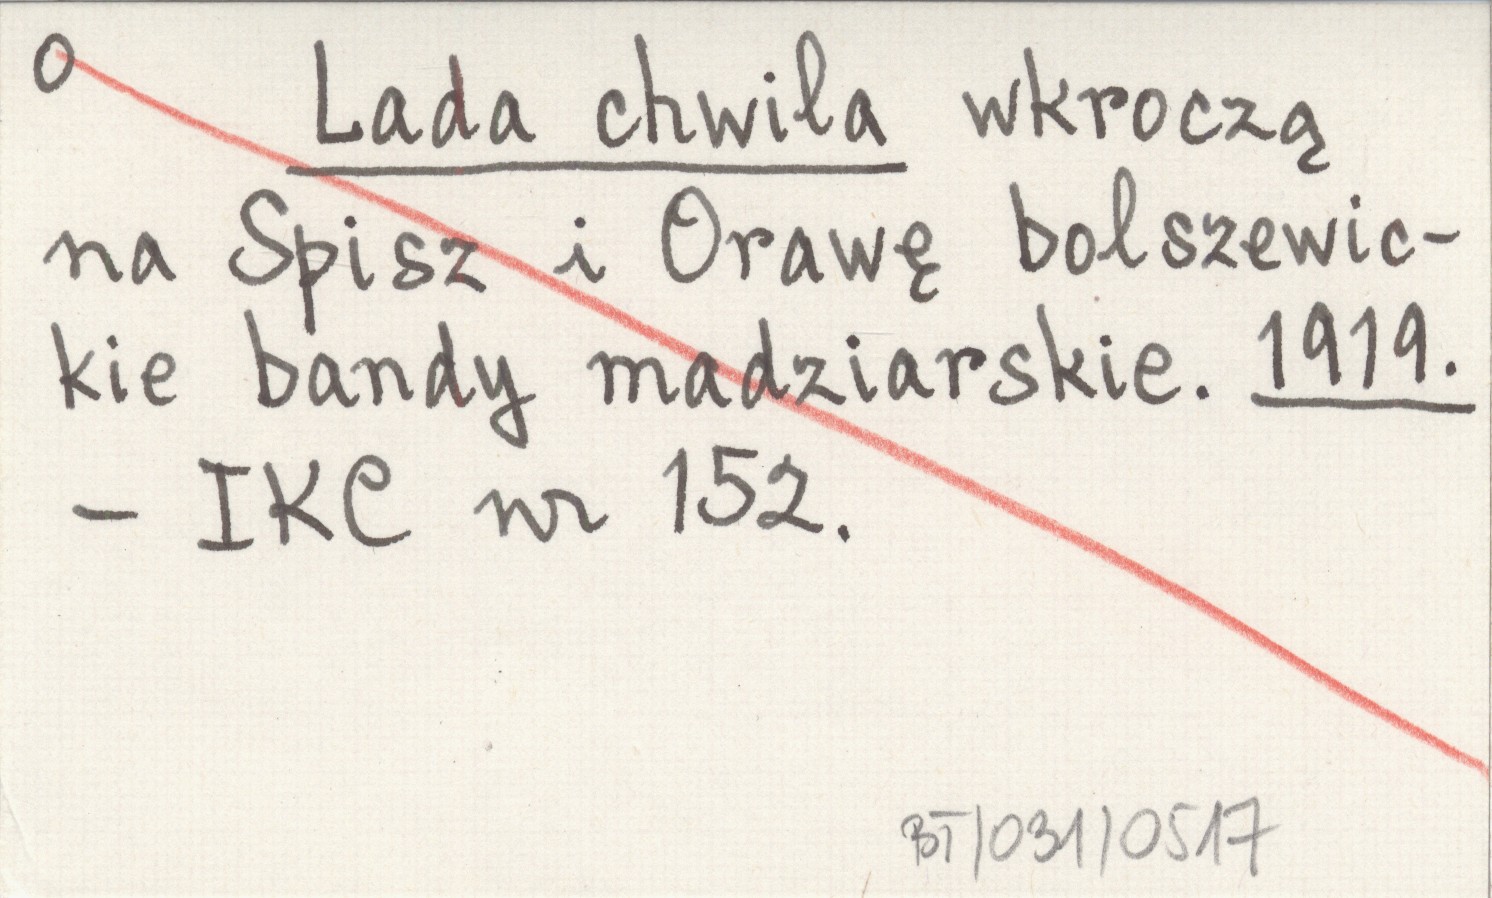 O Lada chwila wkroczą
na Spisz i Orawę bolszewic-
kie bandy madziarskie. 1919.
- IKC nr 152.
BT/031/0517